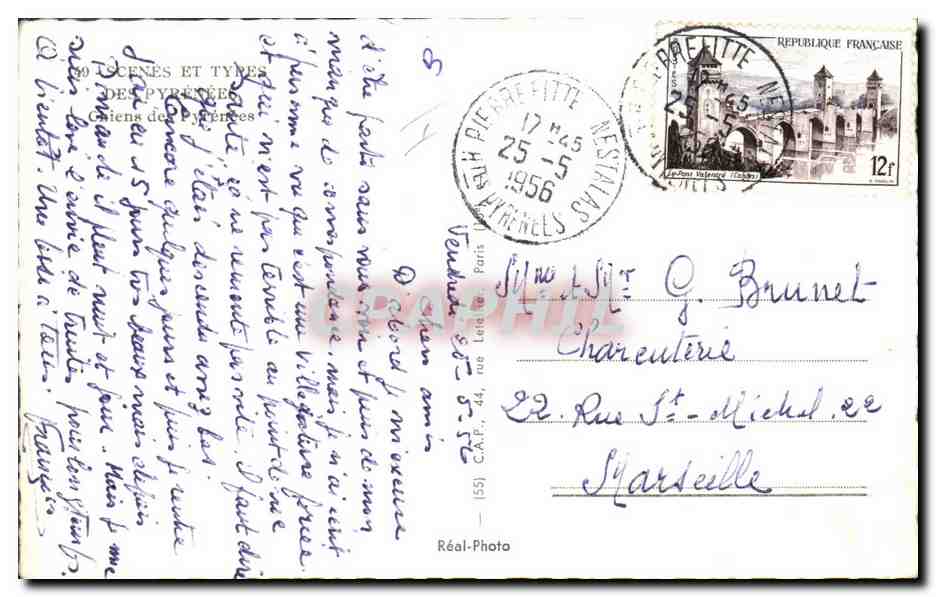 49 SCENES ET TYPES
DES PYRÉNÉES
Chiens des Pyrénées
Vendredi 25-5-56
Chers amis
D'abord je m'excuse
d'être partis sans vous
manque de correspondance, mais je n'ai écrit
à personne vu que c'est une villégiature forcée
et qui n'est pas terrible au point de vue
santé, ça ne remonte pas vite. il faut dire
que j'étais descendu assez bas
encore quelques jours et puis je rentre
15 jours très beaux mais depuis
il pleut nuit et jour. Mais je me
suis levé l'envie de truites pour longtemps.
A bientôt. Une bise à tous.
PIERREFITTE NESTALAS
17 H 45
25 -5
1956
HTES PYRENEES
PIERREFITTE NESTALAS
25 -5
REPUBLIQUE FRANÇAISE
POSTES
Le Pont Valentré (Cahors)
12f
CARPHIL
Mme & Mr G. Brunet
Charcuterie
22. Rue St-Michel. 22
Marseille
(55) C.A.P., 44, rue Letellier, Paris
Réal-Photo